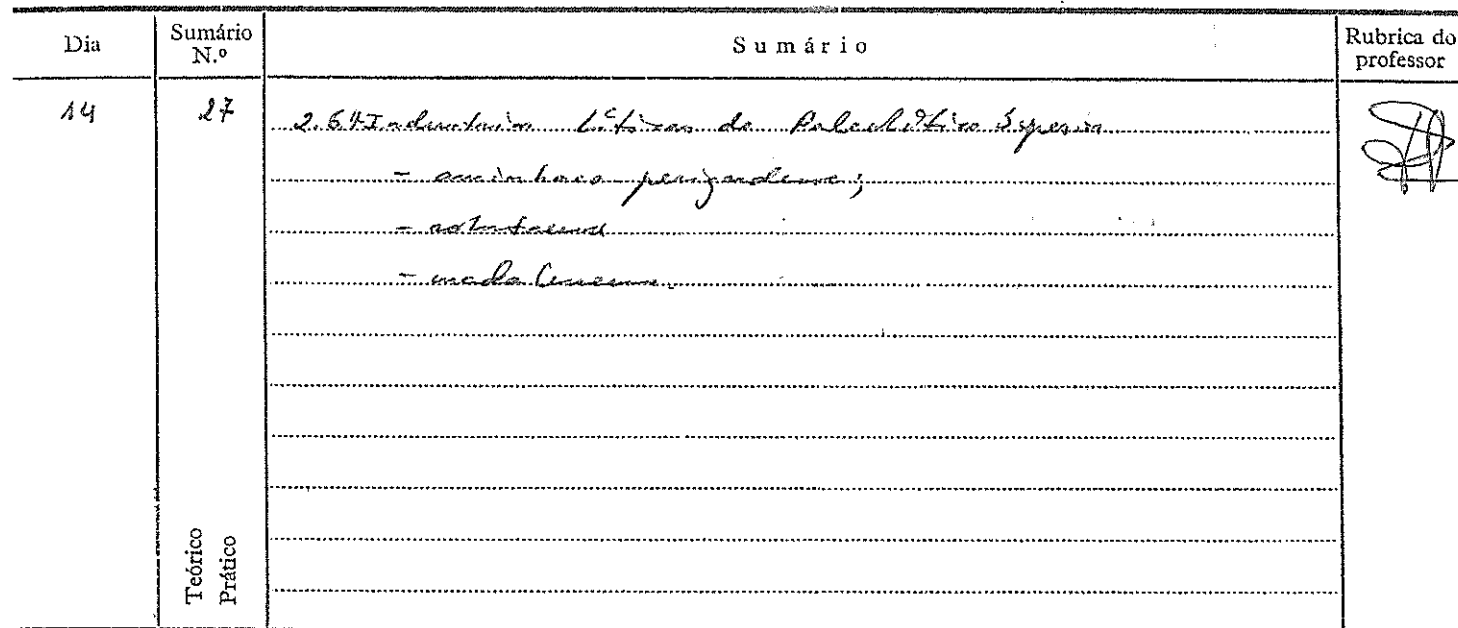 Dia
Sumário N.º
Sumário
Rubrica do professor
14
27
2.6 Industrias Líticas do Paleolítico Superior
- perigordense;
- solutrense
- madalenense.
Teórico
Prático